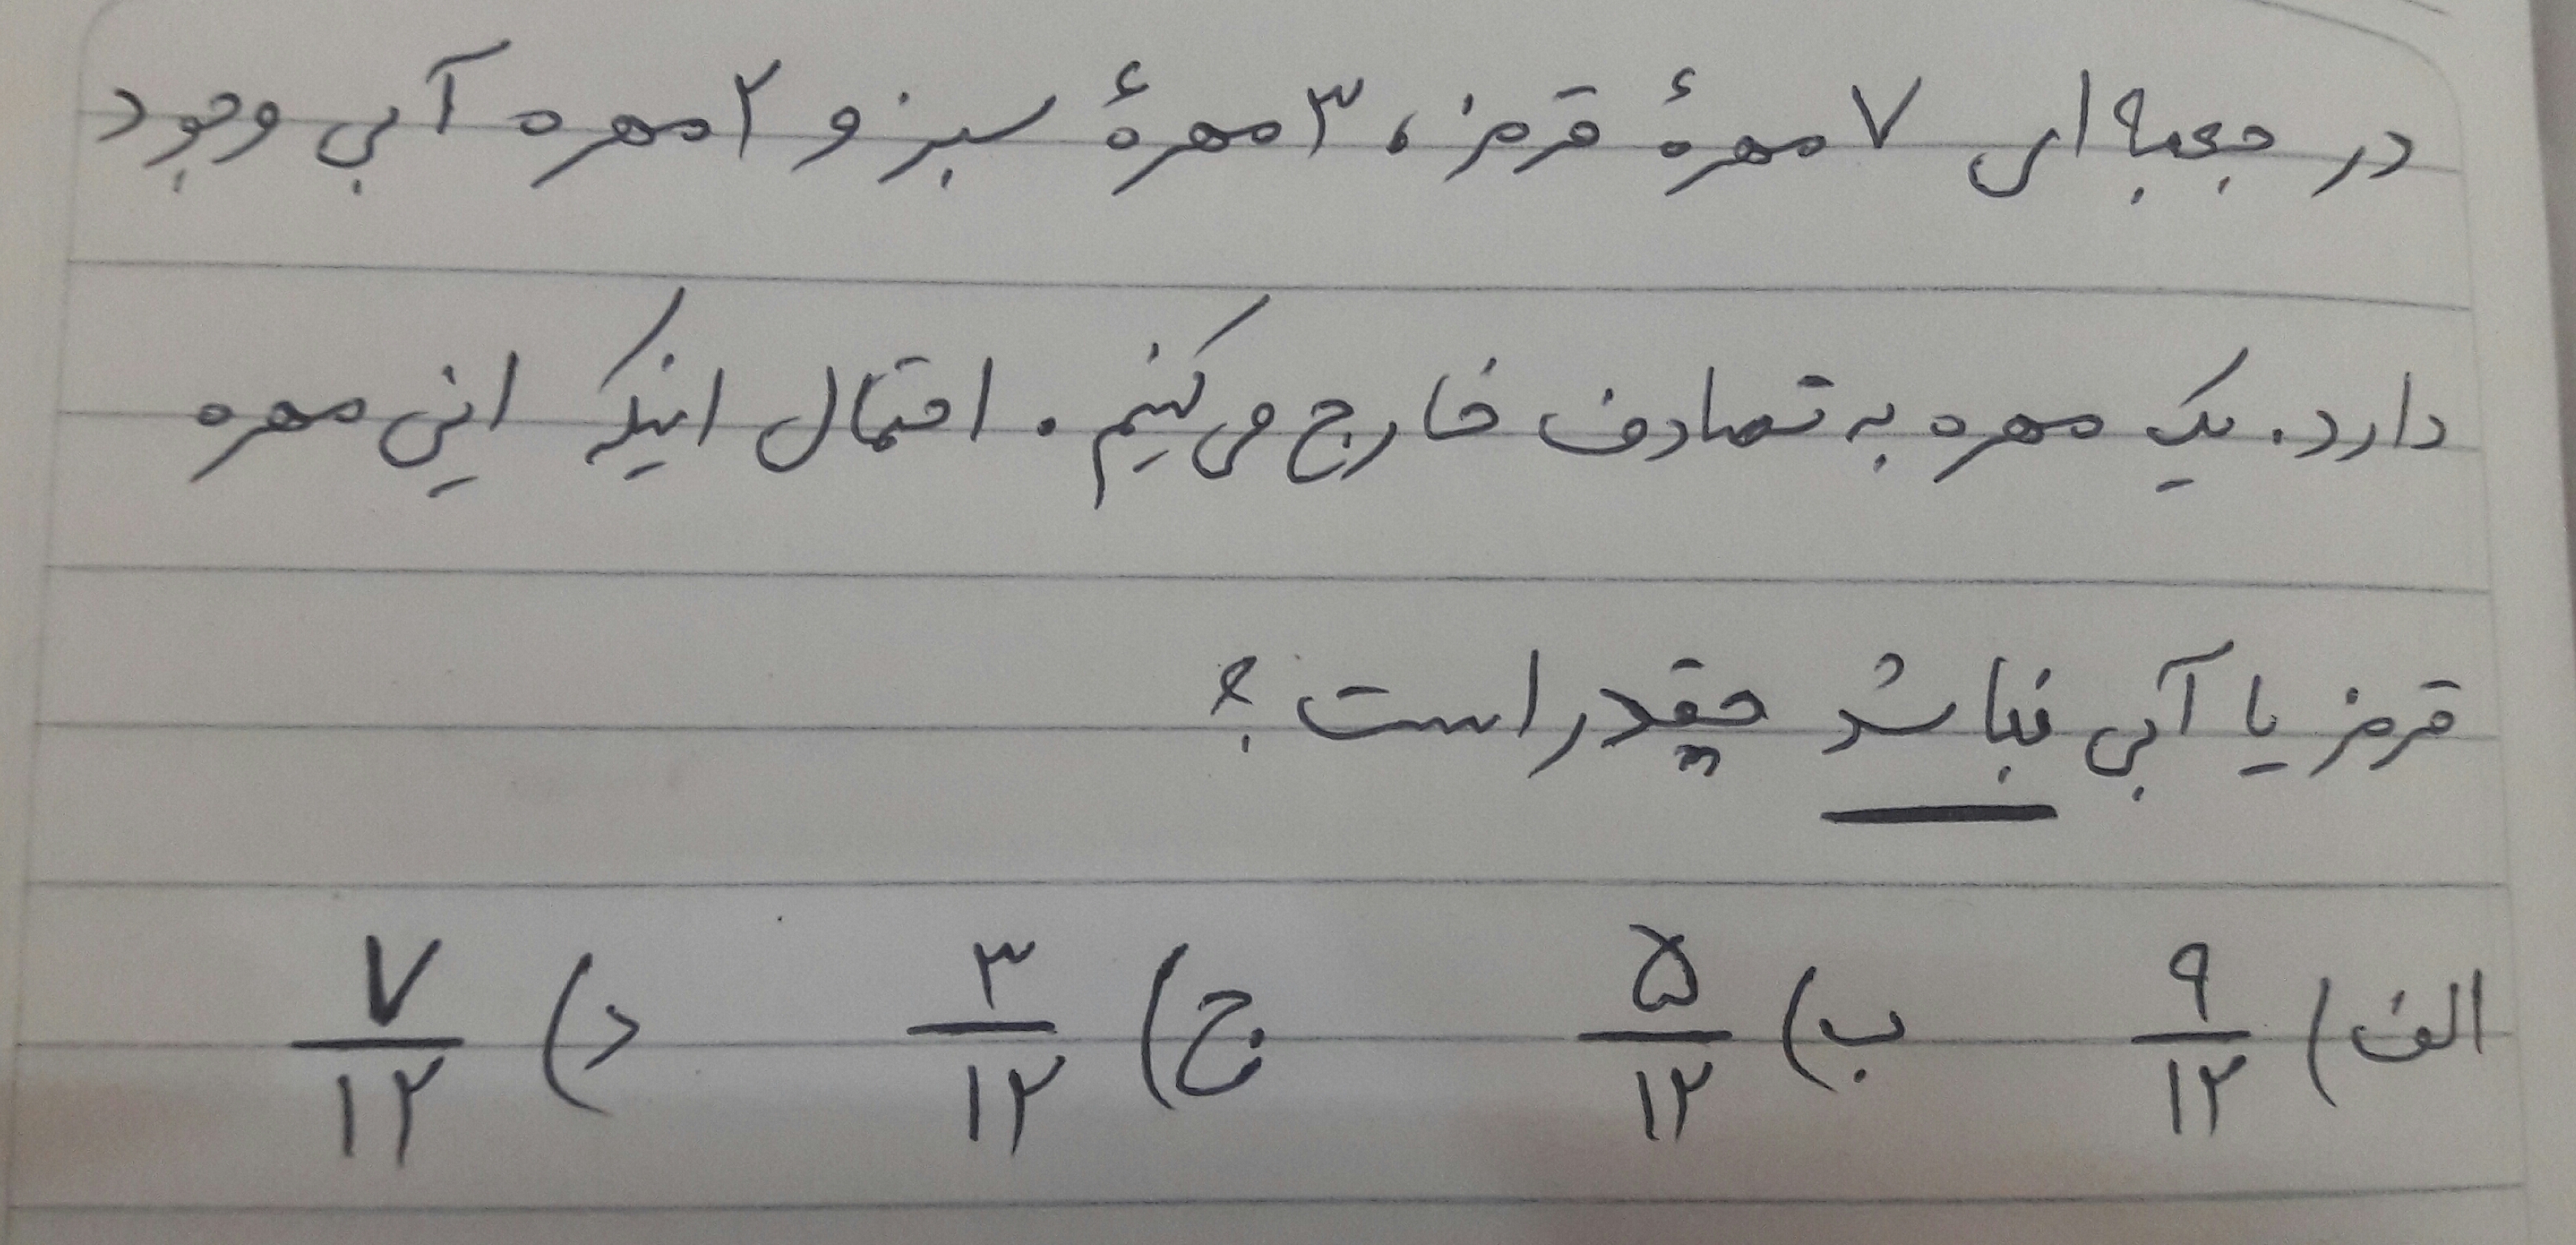 در جعبه ای ۷ مهرهٔ قرمز، ۳ مهرهٔ سبز و ۲ مهره آبی وجود
دارد. یک مهره به تصادف خارج می‌کنیم. احتمال اینکه این مهره
قرمز یا آبی نباشد چقدر است؟
الف) ۹/۱۲ ب) ۵/۱۲ ج) ۳/۱۲ د) ۷/۱۲